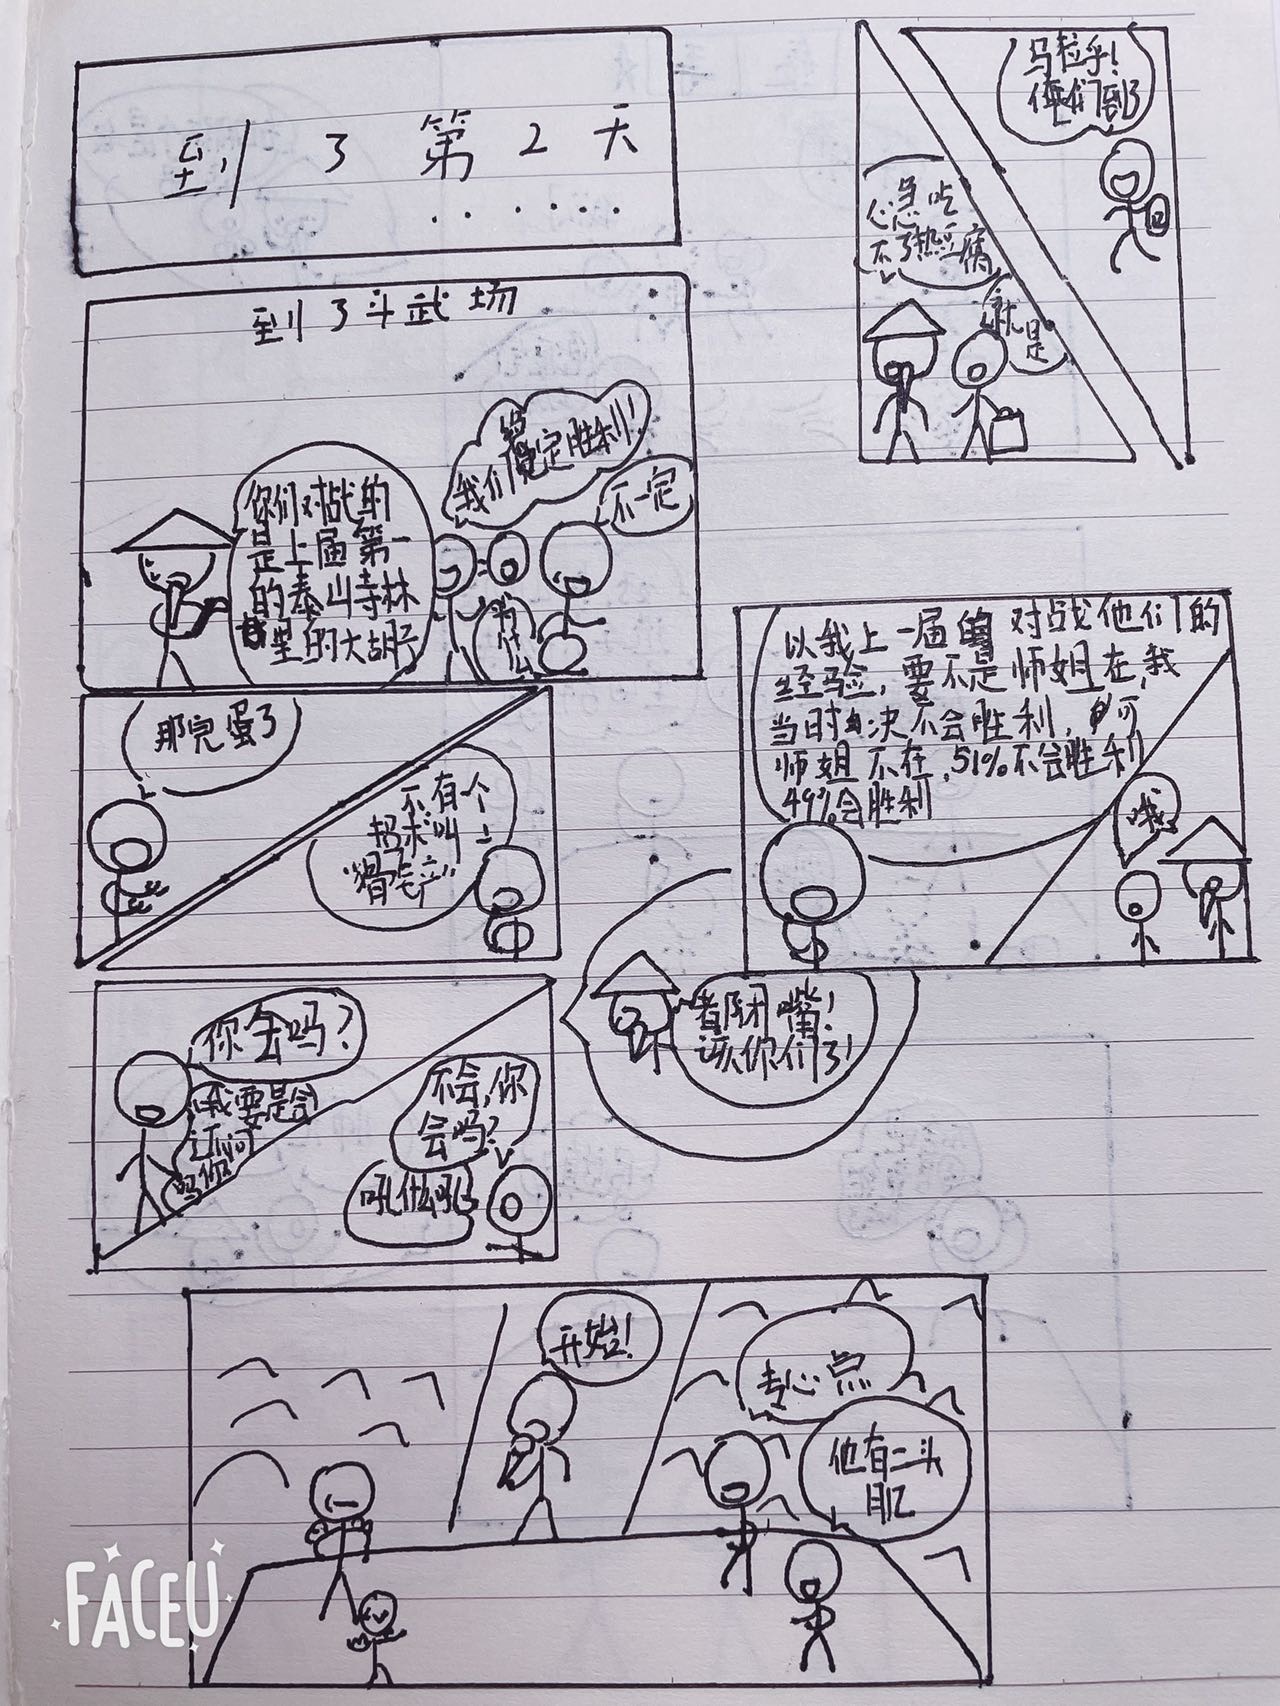 到了第2天
.......
乌拉乎!
俺们到了
心急吃
不了热豆腐
就
是
到了斗武场
你们对战的
是上届第一
的泰山寺林
里的大胡子
我们稳定胜利!
不一定
为
什
么
以我上一届的对战他们的
经验,要不是师姐在,我
当时决不会胜利,可
师姐不在,51%不会胜利
49%会胜利
哦
那完蛋了
不,有个
招术叫
你会吗?
我要是会
还问
吗你
不会,你
会吗?
吼什么吼
看
闭嘴!
该你们了!
开始!
专心点
他有二头
肌
FACEU